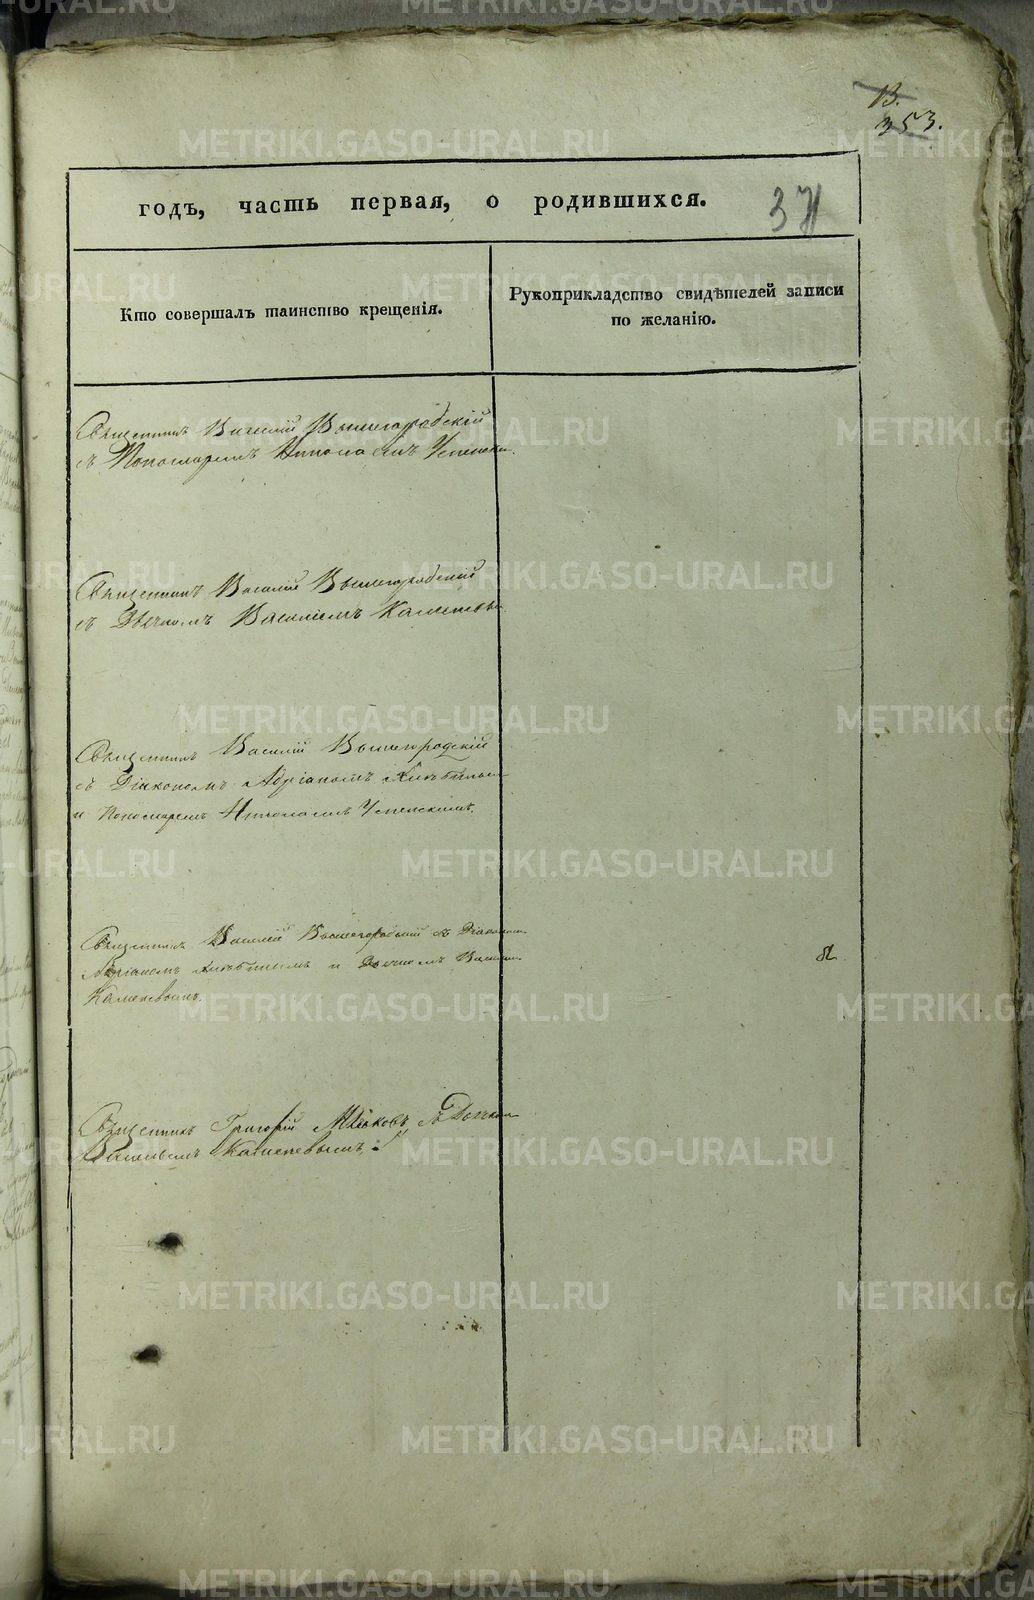 13.
353.
годъ, часть первая, о родившихся.
37
Кто совершалъ таинство крещенія.
Рукоприкладство свидѣтелей записи
по желанію.
Священникъ Василій Вышегородскій
съ Пономаремъ Николаемъ Успенски
Священникъ Василій Вышегородскій
съ Дьячкомъ Василіемъ Каменевы
Священникъ Василій Вышегородскій
съ Діакономъ Адріаномъ
и Пономаремъ Николаемъ Успенскимъ.
Священникъ Василій Вышегородскій съ Діакономъ
Адріаномъ и Дьячкомъ Васили
Каменевымъ.
Священникъ Григорій съ Дьячком
Василіемъ Каменевымъ.
METRIKI.GASO-URAL.RU